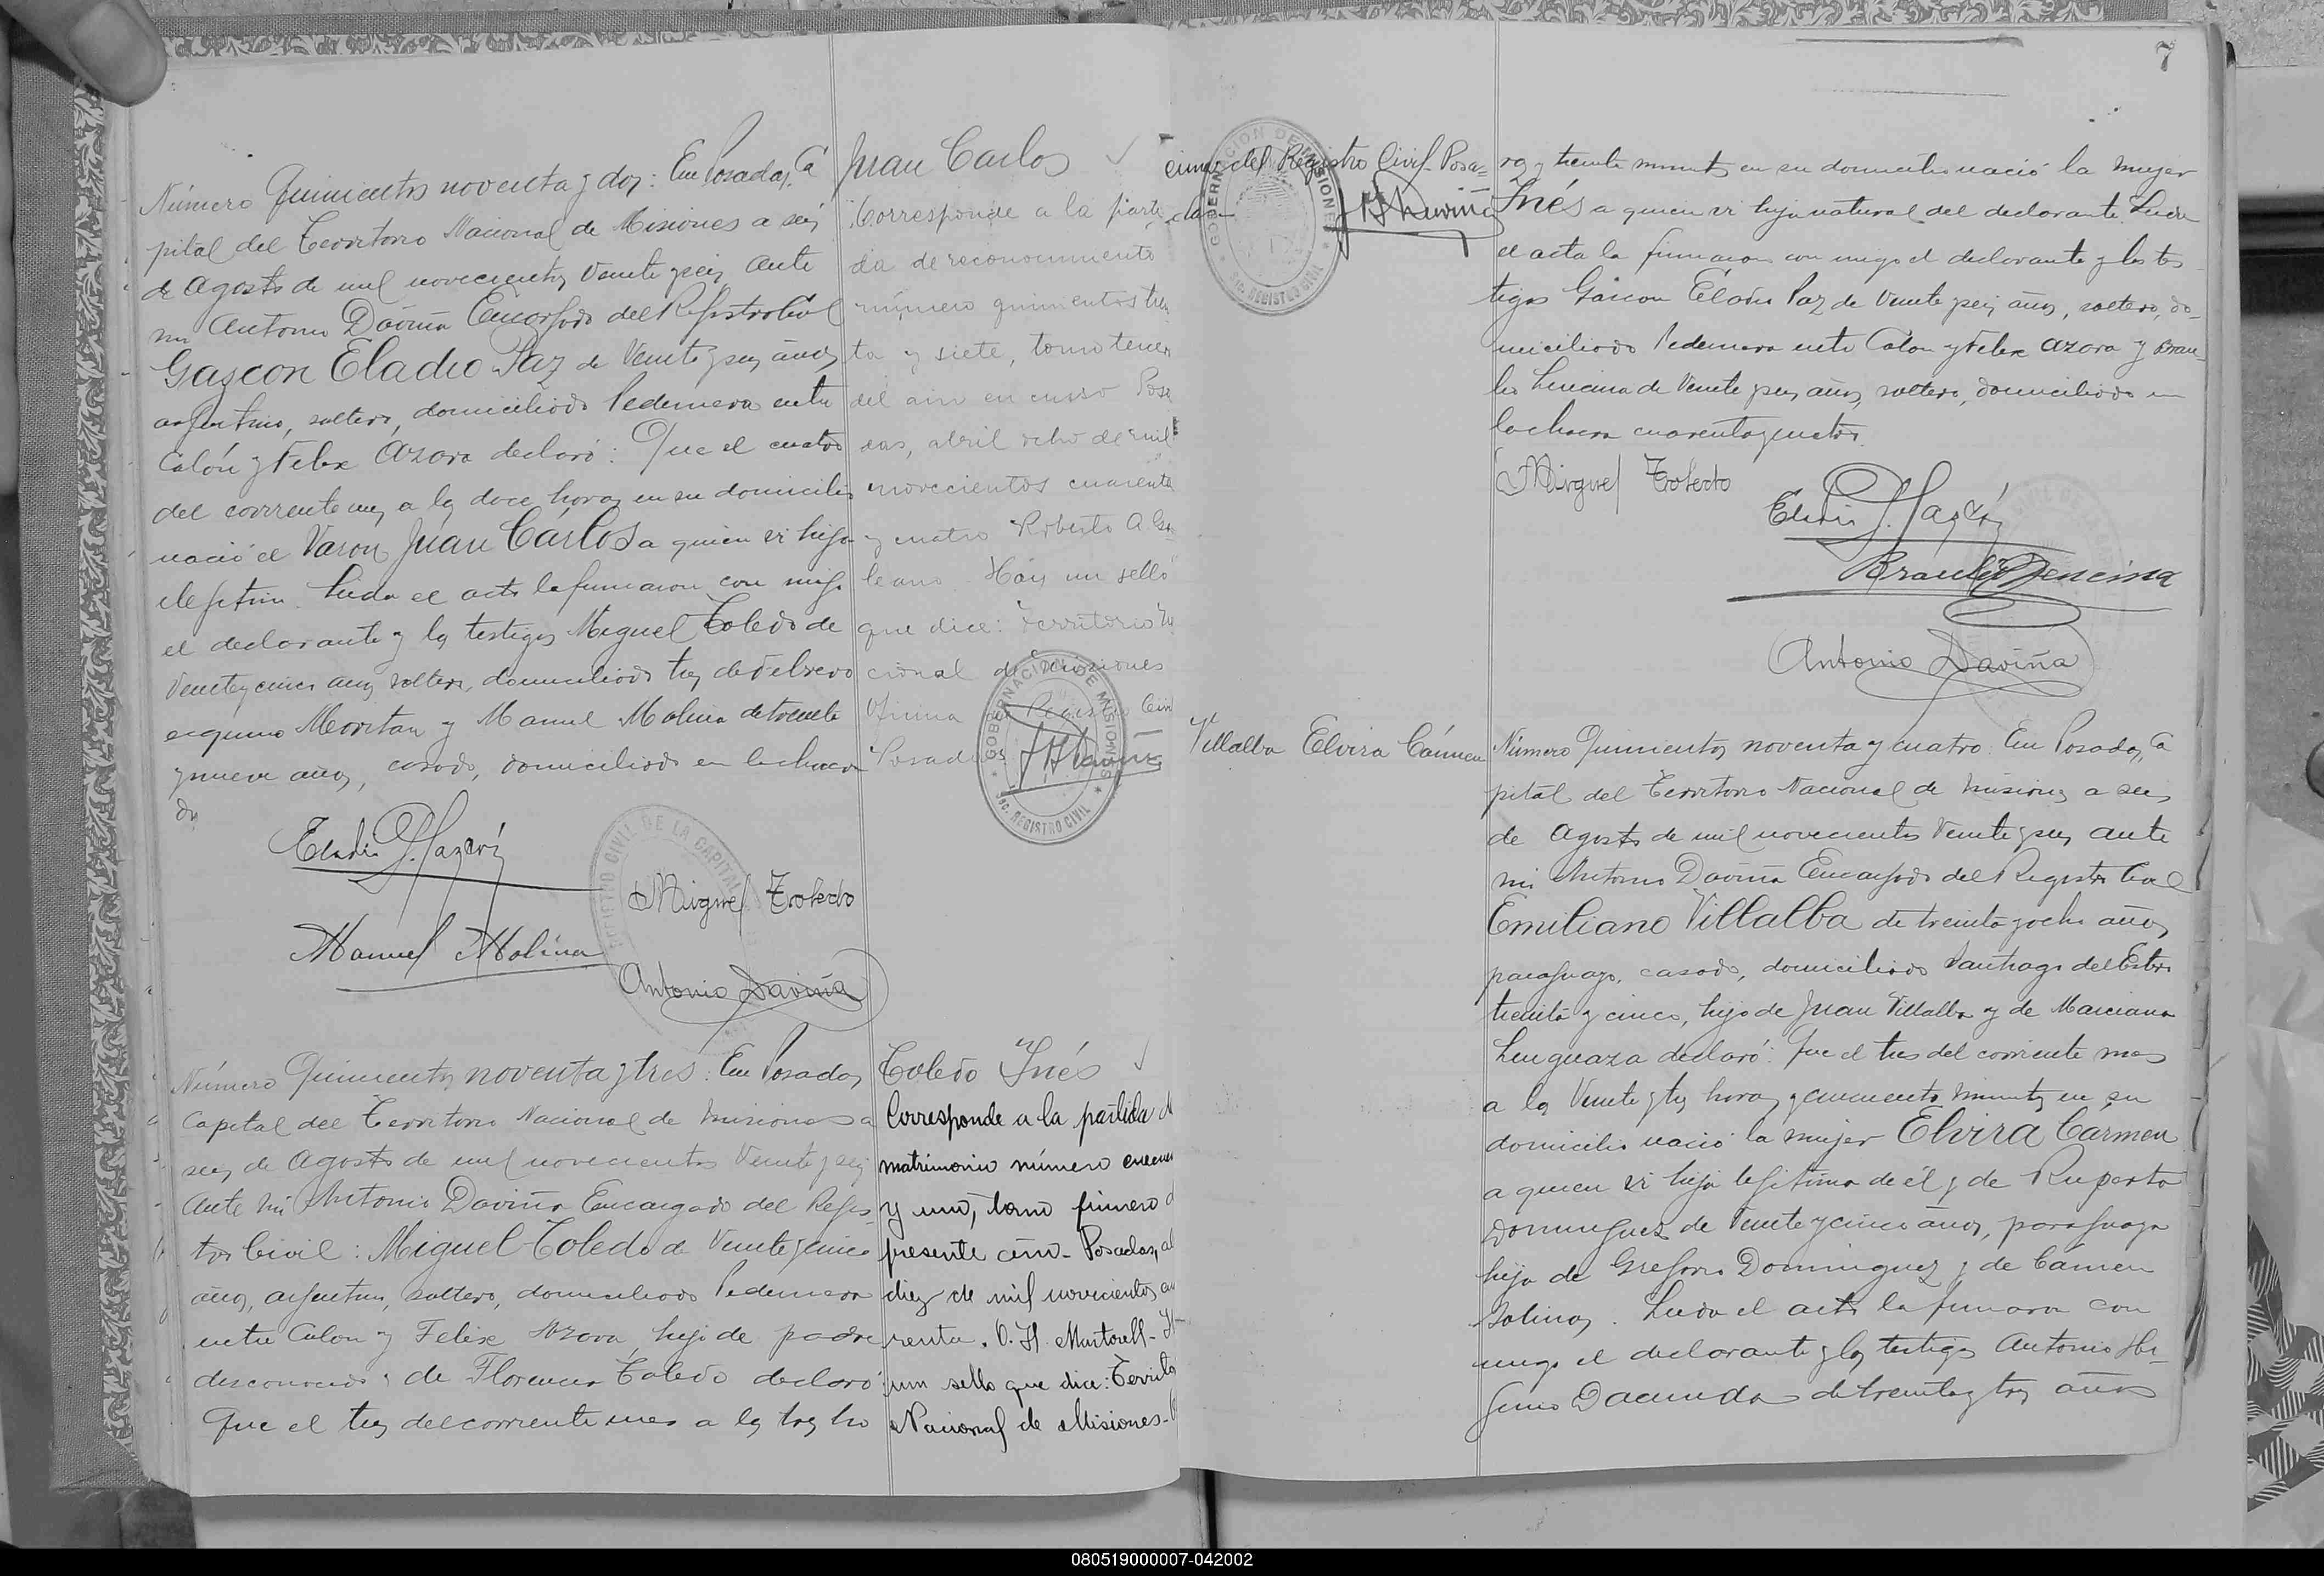 Número Quinientos noventa y dos: En Posadas, Ca
pital del Territorio Nacional de Misiones a seis
de Agosto de mil novecientos veinte y seis ante
mi Antonio Daviña Encargado del Registro Civil
Gazcon Eladio Paz de veinte y seis años,
argentino, soltero, domiciliado Pedernera entre
Colón y Felix Azara declaró: Que el cuatro
del corriente mes a las doce horas en su domicilio
nació el Varon Juan Carlos a quien vi hijo
ilegitimo. Leida el acta la firmaron con migo
el declarante y los testigos Miguel Toledo de
veinte y cinco años soltero, domiciliado tres de Febrero
esquina y Manuel Molina de treinta
y nueve años, casado, domiciliado en la chacra
dos
Eladio P. Gazcón
Miguel Toledo
Manuel Molina
Antonio Daviña
REGISTRO CIVIL DE LA CAPITAL
Juan Carlos
Corresponde a la parti
da de reconocimiento
número quinientos trein
ta y siete, tomo tercer
del año en curso Posa
das, abril ocho de mil
novecientos cuarenta
y cuatro Roberto A. Ga
leano - Hay un sello
que dice: Territorio Na
cional de Misiones
Oficina Registro Civil
Posadas
GOBERNACION DE MISIONES
Sec. REGISTRO CIVIL
Número Quinientos noventa y tres: En Posadas,
Capital del Territorio Nacional de Misiones a
seis de Agosto de mil novecientos veinte y seis
ante mi Antonio Daviña Encargado del Regis-
tro Civil: Miguel Toledo de veinte y cinco
años, argentino, soltero, domiciliado Pedernera
entre Colon y Felix Azara, hijo de padre
desconocido y de Florencia Toledo declaró
Que el tres del corriente mes a las tres ho
Toledo Inés
Corresponde a la partida d
matrimonio número cuaren
y uno, tomo primero d
presente año - Posadas, ab
diez de mil novecientos cu
renta. O. H. Martorell - H
un sello que dice: Territo
Nacional de Misiones - O
7
cina del Registro Civil - Posa-
das -
GOBERNACION DE MISIONES
Sec. REGISTRO CIVIL
ras y treinta minutos en su domicilio nació la mujer
Inés a quien vi hija natural del declarante. Leida
el acta la firmaron con migo el declarante y los tes
tigos Gazcon Eladio Paz de veinte y seis años, soltero, do-
miciliado Pedernera entre Colon y Felix Azara y Brau-
lio Lencina de veinte y seis años, soltero, domiciliado en
la chacra cuarenta y cuatro.
Miguel Toledo
Eladio P. Gazcón
Braulio Lencina
Antonio Daviña
Villalba Elvira Cármen
Número Quinientos noventa y cuatro. En Posadas, Ca
pital del Territorio Nacional de Misiones a seis
de Agosto de mil novecientos veinte y seis ante
mi Antonio Daviña Encargado del Registro Civil
Emiliano Villalba de treinta y ocho años,
paraguayo, casado, domiciliado Santiago del Estero
treinta y cinco, hijo de Juan Villalba y de Marciana
Lenguaza declaró: Que el tres del corriente mes
a las veinte y tres horas y cincuenta minutos en su
domicilio nació la mujer Elvira Cármen
a quien vi hija legitima de él y de Ruperta
Dominguez de veinte y cinco años, paraguaya
hija de Gregorio Dominguez y de Cármen
Salinas. Leida el acta la firmaron con
migo el declarante y los testigos Antonio Hi-
ginio Dacunda de treinta y tres años
080519000007-042002